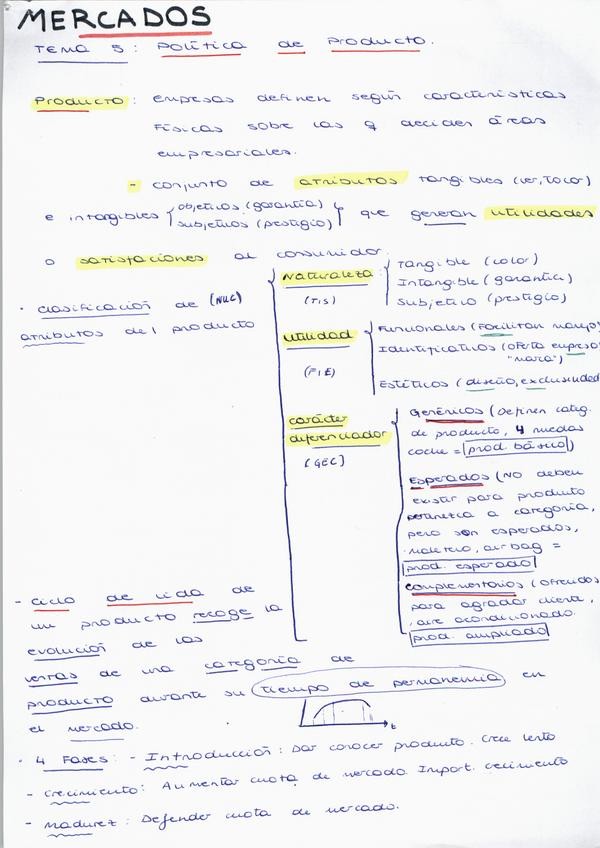 MERCADOS
TEMA 5: POLÍTICA DE PRODUCTO.
PRODUCTO: empresas definen según características
físicas sobre las q deciden áreas
empresariales.
- conjunto de atributos tangibles (ver, tocar)
e intangibles { objetivos (garantía)
subjetivos (prestigio) } que generan utilidades
o satisfacciones al consumidor.
· Clasificación de (NUC)
atributos del producto
Naturaleza
(TIS)
Tangible (color)
Intangible (garantía)
Subjetivo (prestigio)
Utilidad
(FIE)
Funcionales (facilitan manejo)
Identificativos (oferta empresa
"marca")
Estéticos (diseño, exclusividad
carácter
diferenciador
[GEC]
Genéricos (Definen categ.
de producto, 4 ruedas
coche = prod. básico)
Esperados (NO deben
existir para producto
pertenezca a categoría,
pero son esperados,
maletero, airbag =
prod. esperado
Complementarios (ofrecidos
para agradar cliente,
aire acondicionado.
prod. ampliado
- Ciclo de vida de
un producto recoge la
evolución de las
ventas de una categoría de
producto durante su tiempo de permanencia en
el mercado.
t
· 4 Fases: - Introducción: Dar conocer producto. Crece lento
- Crecimiento: Aumentar cuota de mercado. Import. crecimiento
- Madurez: Defender cuota de mercado.